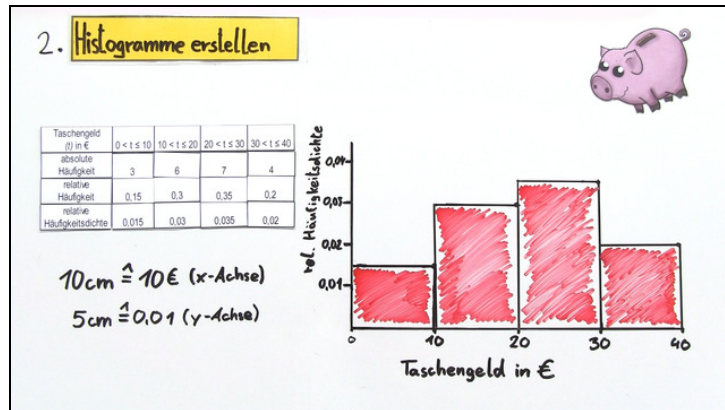 2. Histogramme erstellen
Taschengeld (t) in € 0 < t ≤ 10 10 < t ≤ 20 20 < t ≤ 30 30 < t ≤ 40
absolute Häufigkeit 3 6 7 4
relative Häufigkeit 0,15 0,3 0,35 0,2
relative Häufigkeitsdichte 0,015 0,03 0,035 0,02
10cm ≙ 10€ (x-Achse)
5cm ≙ 0,01 (y-Achse)
rel. Häufigkeitsdichte
0,04
0,03
0,02
0,01
0 10 20 30 40
Taschengeld in €